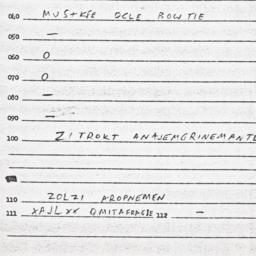 040 MUSTKEE OCLE BOWTIE
050 —
060 O
070 O
080 —
090 —
100 ZITROKT ANAJEMGRINEMANTE
110 ZOLZI AROPNEMEN
111 XAJLXX QMITAFRAGIE 112 —